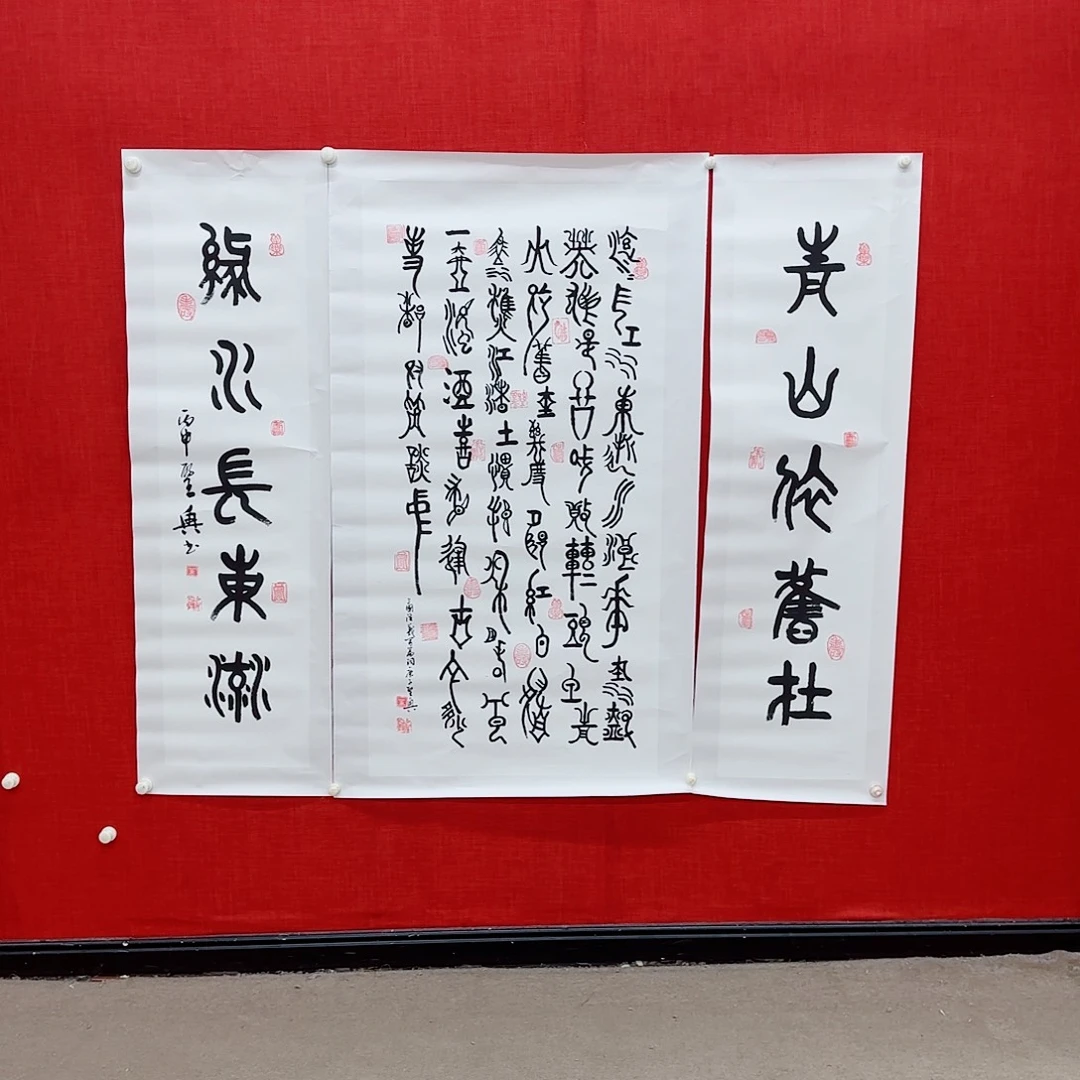 青山依舊在
滾滾長江東逝水浪花淘盡
英雄是非成敗轉頭空青
山依舊在幾度夕陽紅白髮
漁樵江渚上慣看秋月春風
一壺濁酒喜相逢古今多少
事都付笑談中
綠水長東流
丙申